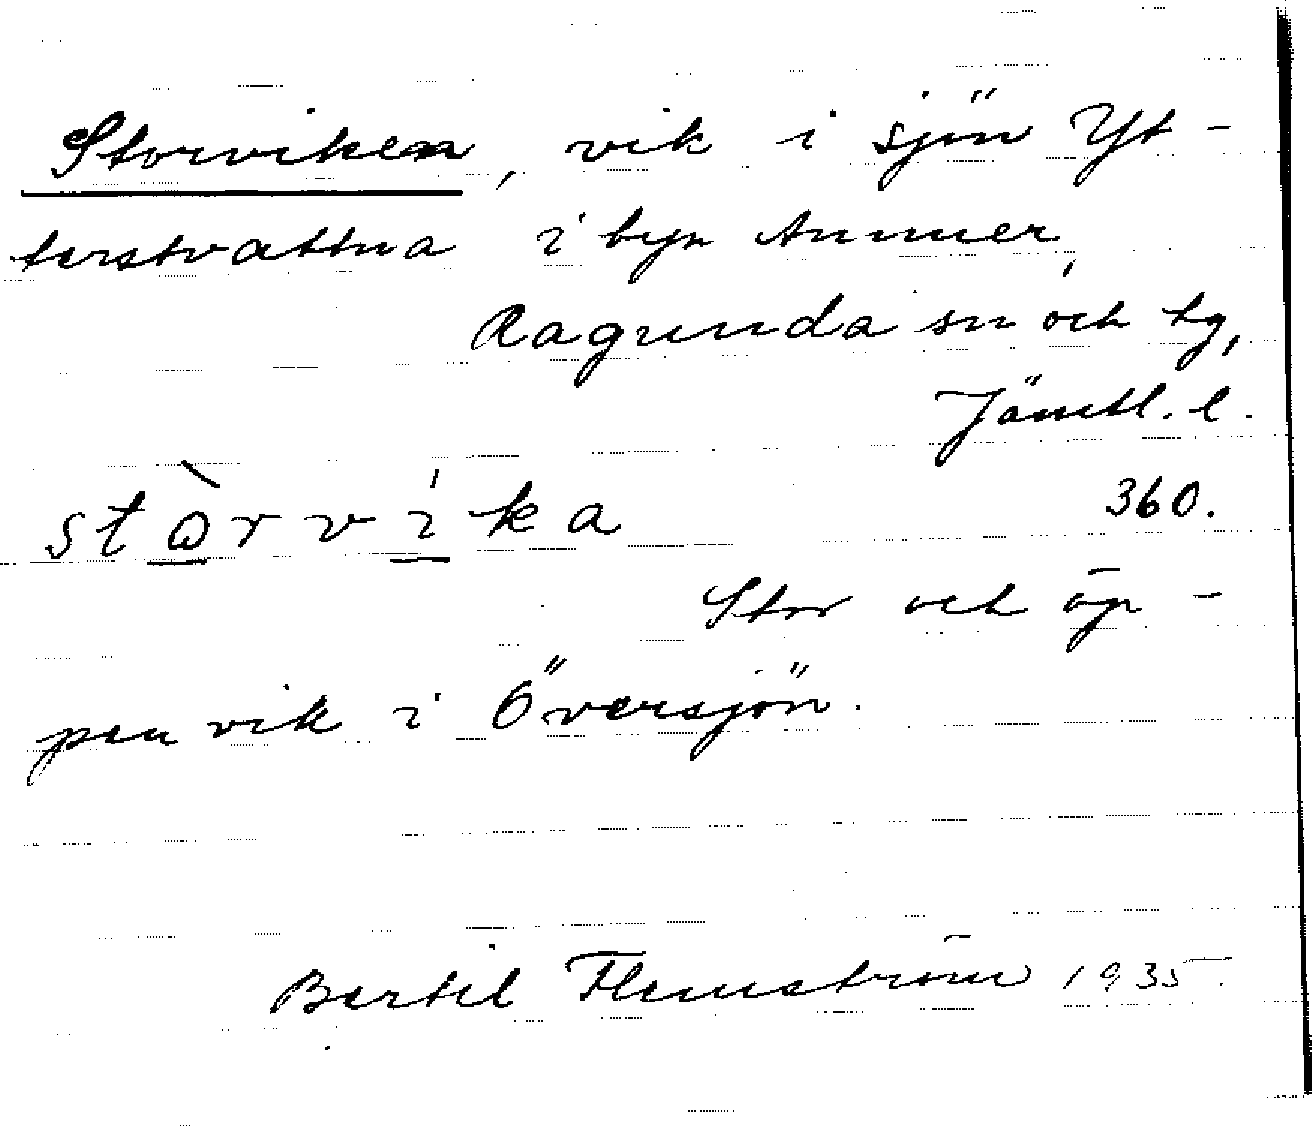 Storviken, vik i sjön Yt-
terstvattna i byn Ammer,
Ragunda sn och tg,
Jämtl. l.
stòrvíka 360.
Stor och öp-
pen vik i Översjön.
Bertil Flemström 1935.